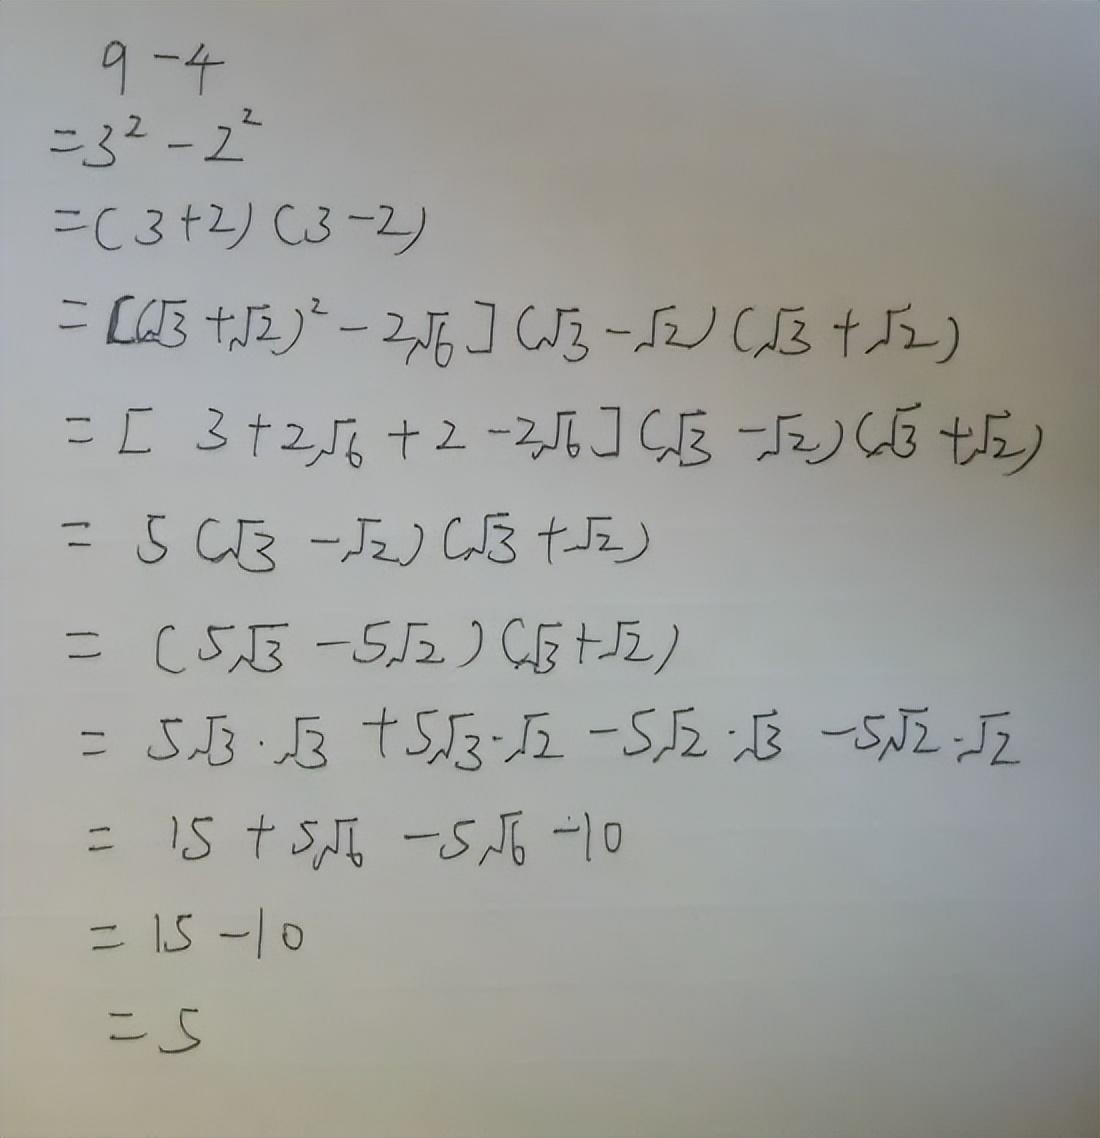 9-4
=3²-2²
=(3+2)(3-2)
=[(√3+√2)²-2√6](√3-√2)(√3+√2)
=[3+2√6+2-2√6](√3-√2)(√3+√2)
=5(√3-√2)(√3+√2)
=(5√3-5√2)(√3+√2)
=5√3·√3+5√3·√2-5√2·√3-5√2·√2
=15+5√6-5√6-10
=15-10
=5